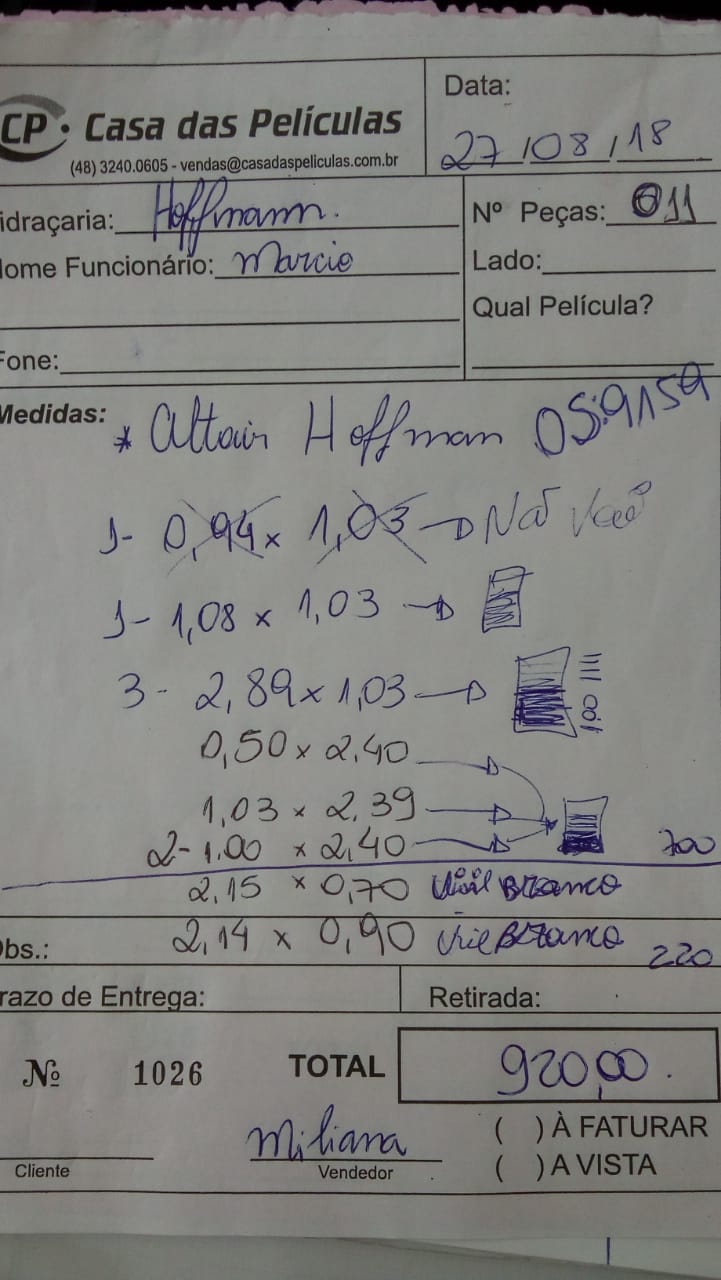 CP • Casa das Películas
(48) 3240.0605 - vendas@casadaspeliculas.com.br
Data:
27/08/18
idraçaria: Hoffmann.
Nº Peças: 011
ome Funcionário: Marcio
Lado:
Qual Película?
Fone:
Medidas:
* Altair Hoffman OS:9159
1- 0,94 x 1,03 → Não
1- 1,08 x 1,03 →
3 - 2,89 x 1,03 →
1.00
0,50 x 2,40
1,03 x 2,39
2- 1.00 x 2,40
700
2,15 x 0,70 Branco
bs.: 2,14 x 0,90 Branco 220
razo de Entrega:
Retirada:
Nº 1026
TOTAL 920,00.
Miliana
( ) À FATURAR
( ) A VISTA
Cliente
Vendedor